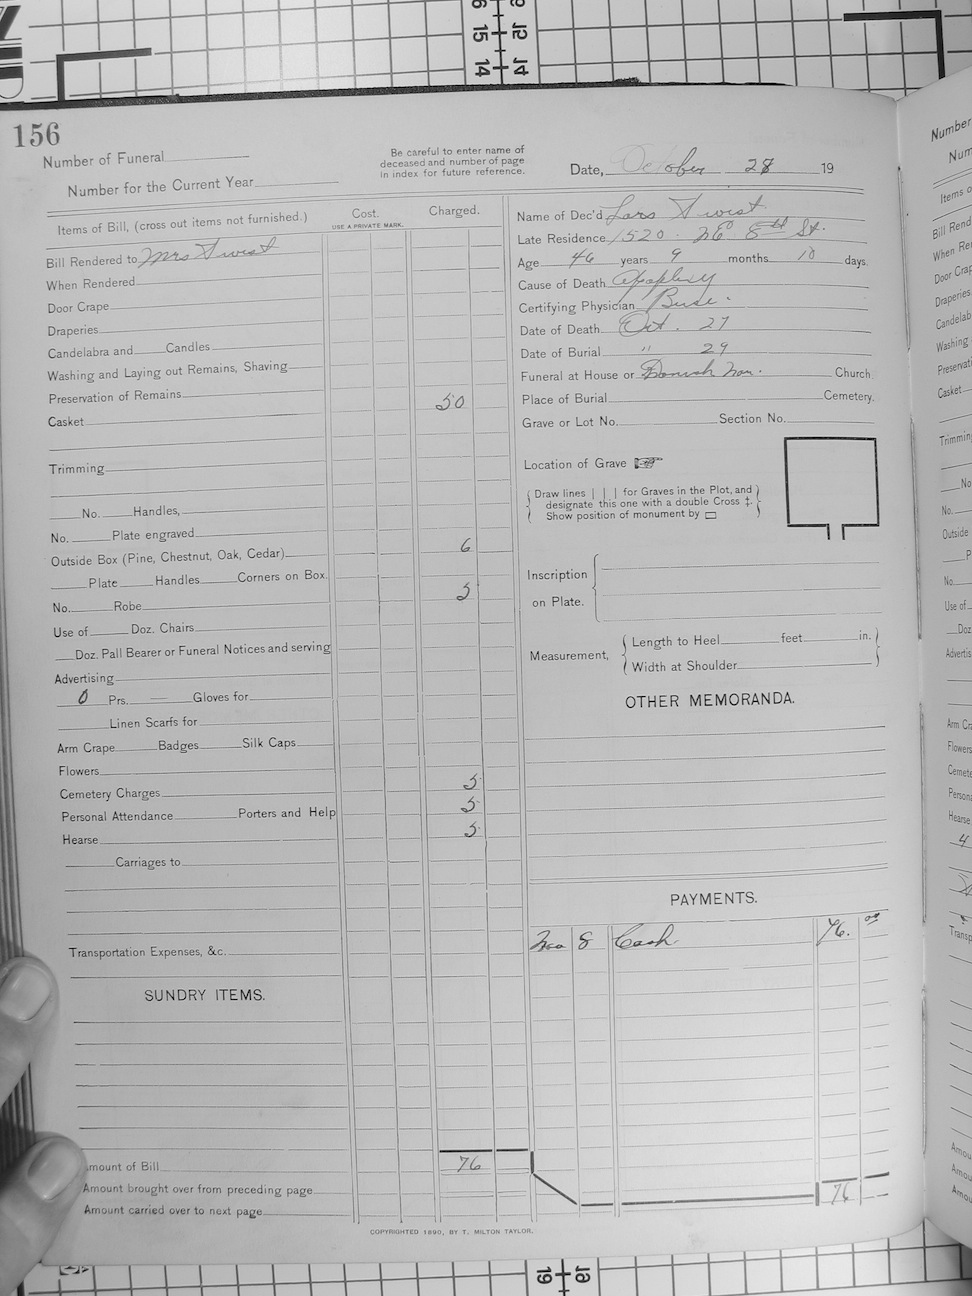 156
Number of Funeral
Number for the Current Year
Be careful to enter name of
deceased and number of page
in index for future reference.
Date, October 28 19
Items of Bill, (cross out items not furnished.)
Cost.
USE A PRIVATE MARK.
Charged.
Bill Rendered to Mrs Twist
When Rendered
Door Crape
Draperies
Candelabra and Candles
Washing and Laying out Remains, Shaving
Preservation of Remains
Casket 50
Trimming
No. Handles,
No. Plate engraved
Outside Box (Pine, Chestnut, Oak, Cedar) 6
Plate Handles Corners on Box.
No. Robe 5
Use of Doz. Chairs
Doz. Pall Bearer or Funeral Notices and serving
Advertising
0 Prs. — Gloves for
Linen Scarfs for
Arm Crape Badges Silk Caps
Flowers
Cemetery Charges 5
Personal Attendance Porters and Help 5
Hearse 5
Carriages to
Transportation Expenses, &c.
SUNDRY ITEMS.
Amount of Bill 76
Amount brought over from preceding page
Amount carried over to next page
Name of Dec'd Lars Twist
Late Residence 1520 No 8th St.
Age 46 years 9 months 10 days.
Cause of Death Apoplexy
Certifying Physician
Date of Death Oct. 27
Date of Burial " 29
Funeral at House or Danish Nor. Church.
Place of Burial Cemetery.
Grave or Lot No. Section No.
Location of Grave
Draw lines | | | for Graves in the Plot, and
designate this one with a double Cross ‡.
Show position of monument by
Inscription
on Plate.
Measurement,
Length to Heel feet in.
Width at Shoulder
OTHER MEMORANDA.
PAYMENTS.
Nov 8 Cash 76. 00
76
COPYRIGHTED 1890, BY T. MILTON TAYLOR.